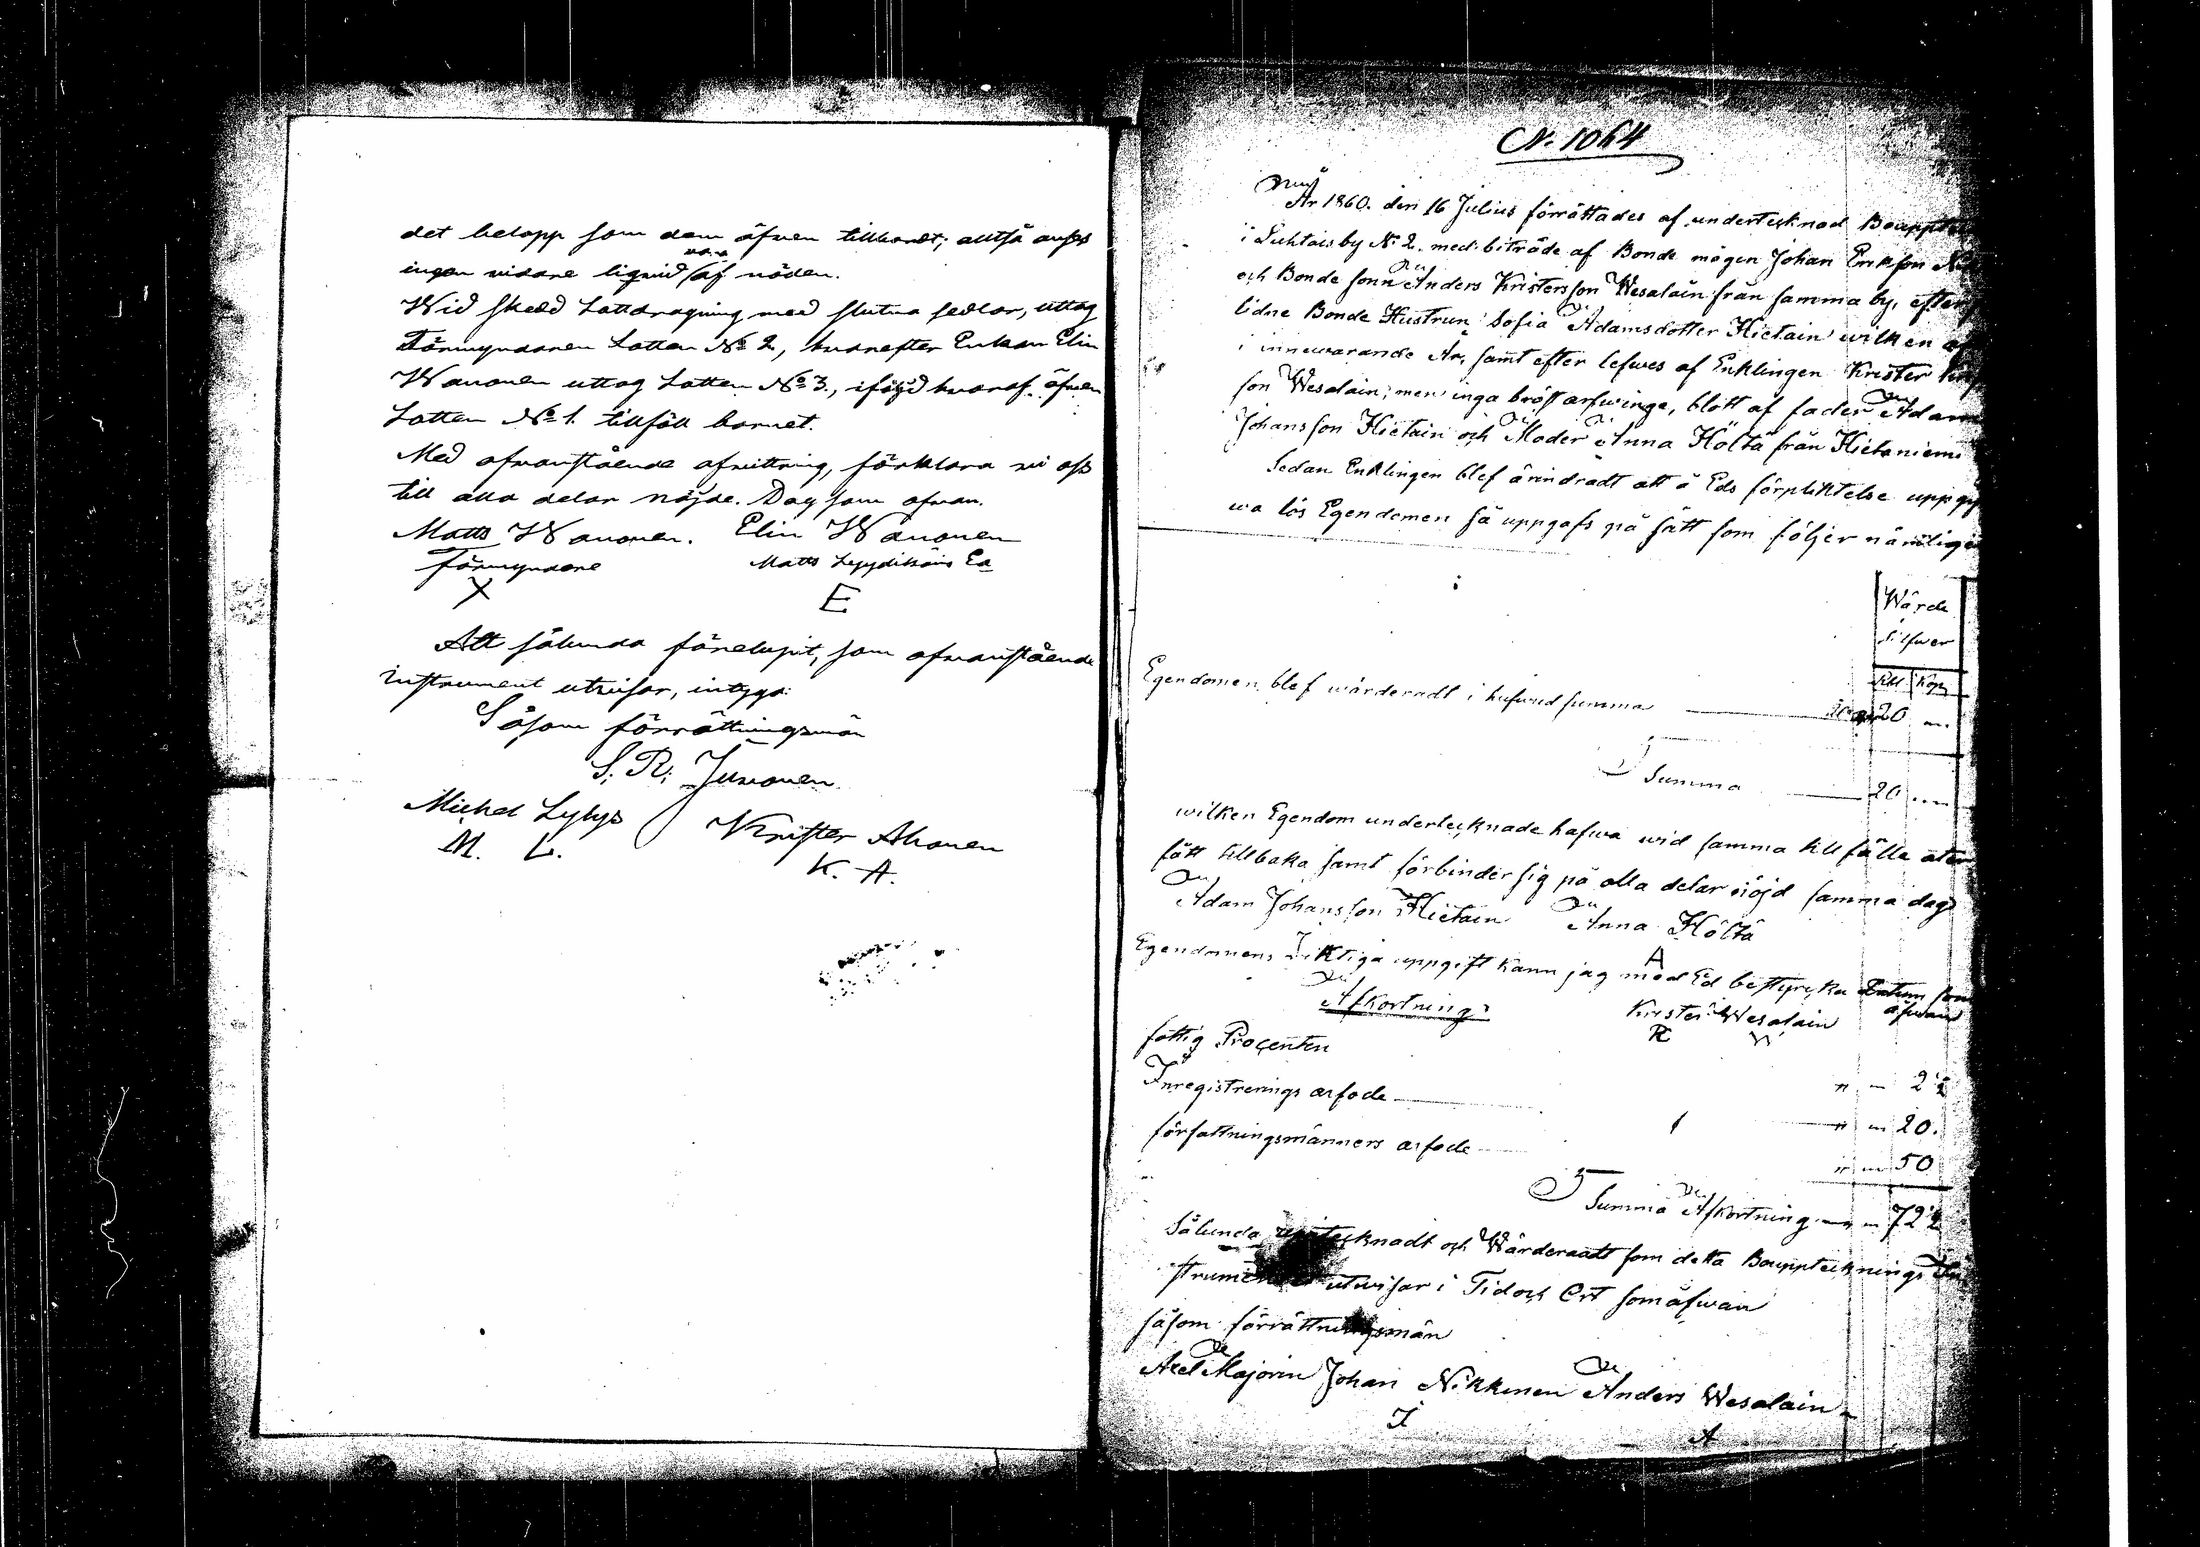 det belopp som dem äfven tillkommit; alltså anses
ingen vidare liqvid af nöden.
Wid skedd Lottdragning med slutna sedlar, uttog
Förmyndaren Lotten No 2, hvarefter Enkan Elin
Wanonen uttog Lotten No 3, ifölgd hvaraf äfven
Lotten No 1. tillföll barnet.
Med ofvanstående afvittring, förklara vi oss
till alla delar nöjde. Dag som ofvan.
Matts Wanonen. Elin Wanonen
Förmyndare Matts Lyydikäins Ea
X E
Att sålunda förelupit, som ofvanstående
instrument utvisar, intyga:
Såsom förrättningsmän
S. R. Jusonen
Michel Lylys Krister Ahonen
M. L. K. A.
N. 1064
År 1860. den 16 Julius förrättades af undertecknad Bouppte
i Luhtais by No 2. med biträde af Bonde mågen Johan Erikson
och Bonde sonn Anders Kristersson Wesalain från samma by, efter
lidne Bonde Hustrun Sofia Adamsdotter Hietain wilken
i innewarande År, samt efter lefwes af Enklingen Krister
son Wesalain; men inga bröst arfwinge, blott af fader Adam
Johansson Hietain och Moder Anna Höltä från Hietaniemi
Sedan Enklingen blef ärindradt att å Eds förpliktelse uppgif
wa lös Egendomen så uppgafs på sätt som följer nämligen
Wärde
Silfwer
Rbl Kop
Egendomen blef wärderadt i hufwud summa 20 "
Summa 20 "
wilken Egendom undertecknade hafwa wid samma tillfälle åter
fått tillbaka samt förbinder sig på alla delar nöjd samma dag
Adam Johansson Hietain Anna Höltä
A
Egendomens Riktiga uppgift kann jag med Ed bestyrcka Datum som
äfwan
Afkortning: Krister Wesalain
K W
fattig Procenten " " 2½
Inregistrerings arfode " " 20.
författningsmänners arfode " " 50
Summa Afkortning " " 72½
Sålunda upptecknadt och Wärderadt som detta Bouppteknings In
strument utwisar i Tid och Ort som äfwan
såsom förrättningsmän
Axel Majorin Johan Nikkinen Anders Wesalain
I A